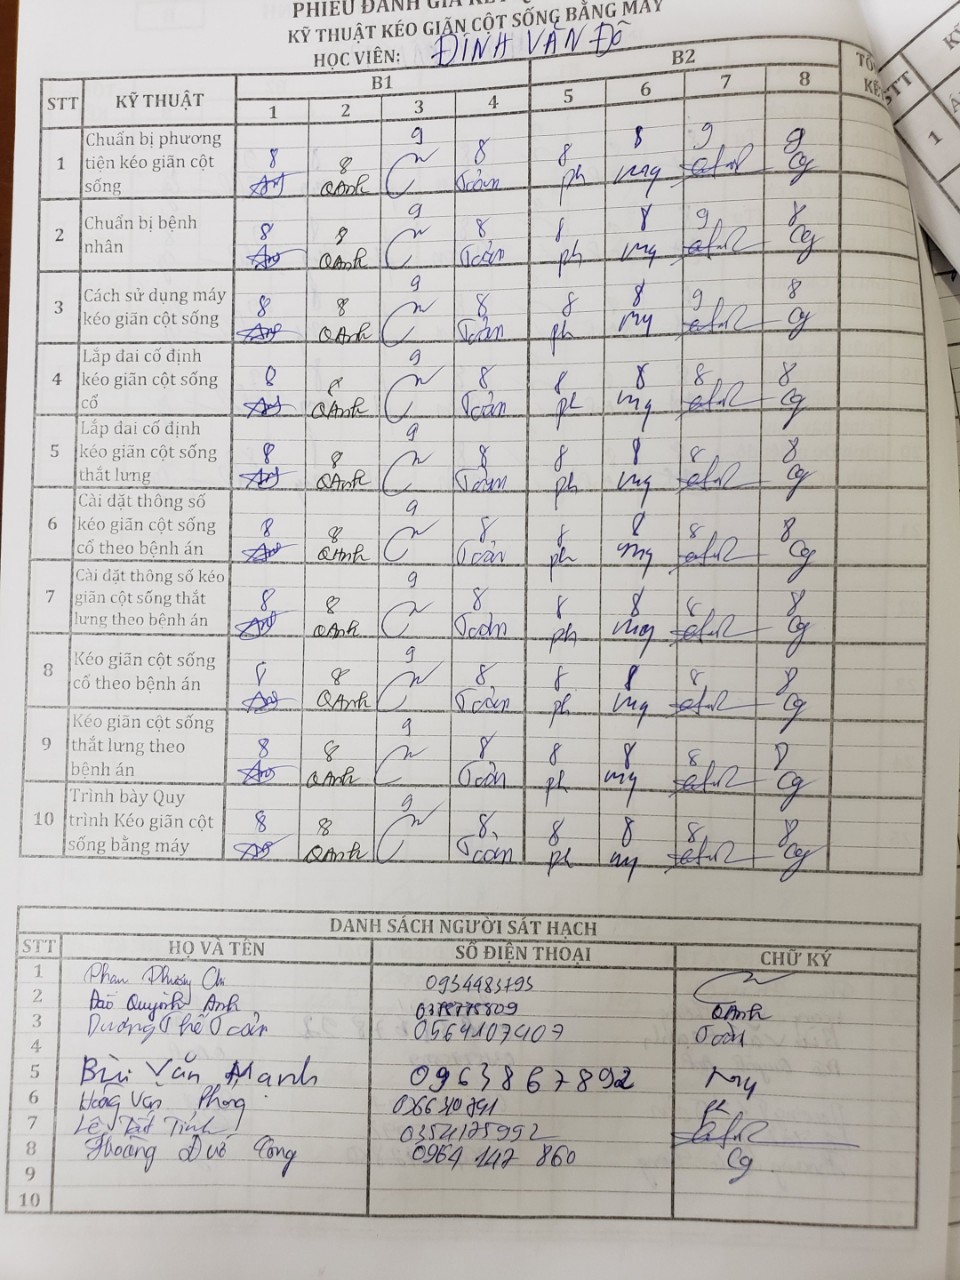 PHIẾU ĐÁNH GIÁ KẾT
KỸ THUẬT KÉO GIÃN CỘT SỐNG BẰNG MÁY
HỌC VIÊN: ĐINH VĂN ĐÔ
STT KỸ THUẬT B1 B2
1 2 3 4 5 6 7 8
1 Chuẩn bị phương tiện kéo giãn cột sống 8 8 9 8 8 8 9 9
QAnh Toản ph mg Cg
2 Chuẩn bị bệnh nhân 8 8 9 8 8 8 9 8
QAnh Toản ph mg Cg
3 Cách sử dụng máy kéo giãn cột sống 8 8 9 8 8 8 9 8
QAnh Toản ph mg Cg
4 Lắp đai cố định kéo giãn cột sống cổ 8 8 9 8 8 8 8 8
QAnh Toản ph mg Cg
5 Lắp đai cố định kéo giãn cột sống thắt lưng 8 8 9 8 8 8 8 8
QAnh Toản ph mg Cg
6 Cài đặt thông số kéo giãn cột sống cổ theo bệnh án 8 8 9 8 8 8 8 8
QAnh Toản ph mg Cg
7 Cài đặt thông số kéo giãn cột sống thắt lưng theo bệnh án 8 8 9 8 8 8 8 8
QAnh Toản ph mg Cg
8 Kéo giãn cột sống cổ theo bệnh án 8 8 9 8 8 8 8 8
QAnh Toản ph mg Cg
9 Kéo giãn cột sống thắt lưng theo bệnh án 8 8 9 8 8 8 8 8
QAnh Toản ph mg Cg
10 Trình bày Quy trình Kéo giãn cột sống bằng máy 8 8 9 8 8 8 8 8
QAnh Toản ph mg Cg
DANH SÁCH NGƯỜI SÁT HẠCH
STT HỌ VÀ TÊN SỐ ĐIỆN THOẠI CHỮ KÝ
1 Phan Phương Chi
2 Đào Quỳnh Anh QAnh
3 Dương Thế Toản 0564107407 Toản
4
5 Bùi Văn Mạnh 0963867892 mg
6 Hoàng Văn Phong
7 Lê Tất Tính 0354175992
8 Hoàng Đức Công 0964 147 860 Cg
9
10